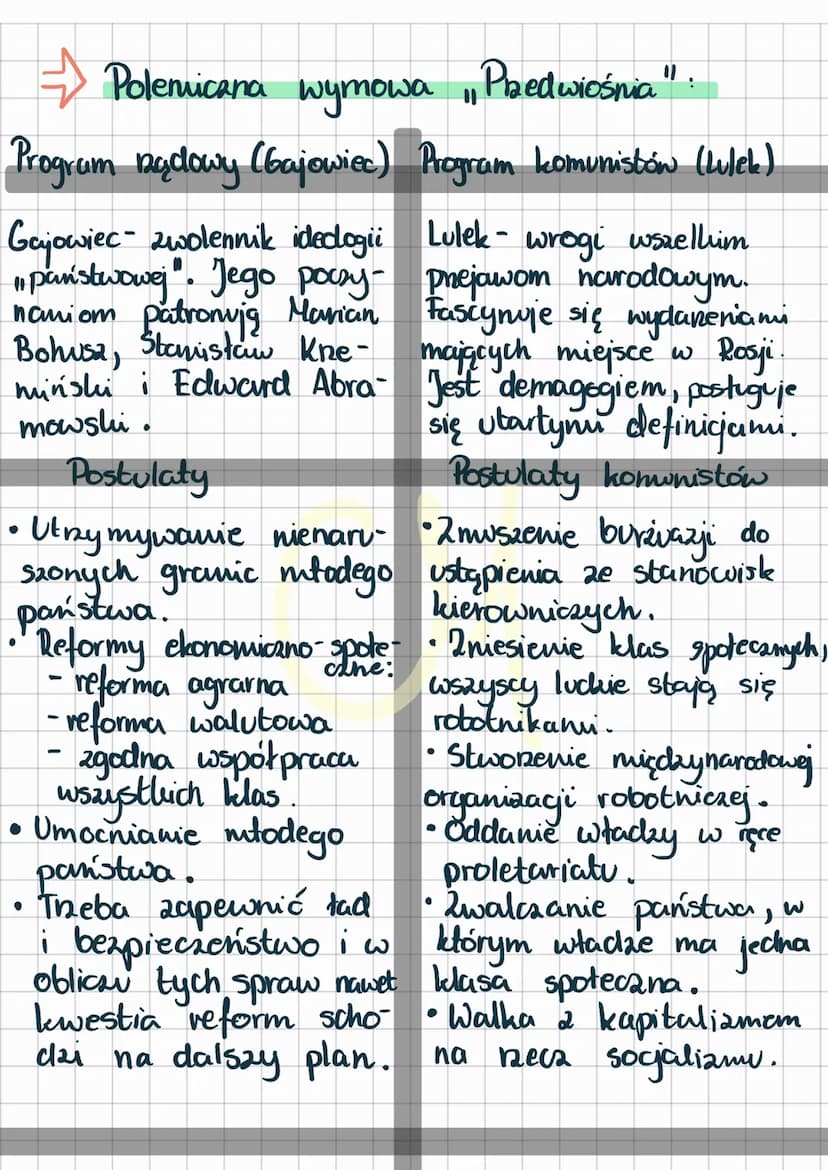 ⇒ Polemiczna wymowa „Przedwiośnia":
Program rządowy (Gajowiec)
Gajowiec - zwolennik ideologii
„państwowej". Jego poczy-
naniom patronują Marian
Bohusz, Stanisław Krze-
miński i Edward Abra-
mowski.
Postulaty
• Utrzymywanie nienaru-
szonych granic młodego
państwa.
• Reformy ekonomiczno-społe-
czne:
- reforma agrarna
- reforma walutowa
- zgodna współpraca
wszystkich klas.
• Umocnianie młodego
państwa.
• Trzeba zapewnić ład
i bezpieczeństwo i w
obliczu tych spraw nawet
kwestia reform scho-
dzi na dalszy plan.
Program komunistów (Lulek)
Lulek - wrogi wszelkim
przejawom narodowym.
Fascynuje się wydarzeniami
mających miejsce w Rosji.
Jest demagogiem, posługuje
się utartymi definicjami.
Postulaty komunistów
• Zmuszenie burżuazji do
ustąpienia ze stanowisk
kierowniczych.
• Zniesienie klas społecznych,
wszyscy ludzie stają się
robotnikami.
• Stworzenie międzynarodowej
organizacji robotniczej.
• Oddanie władzy w ręce
proletariatu.
• Zwalczanie państwa, w
którym władze ma jedna
klasa społeczna.
• Walka z kapitalizmem
na rzecz socjalizmu.